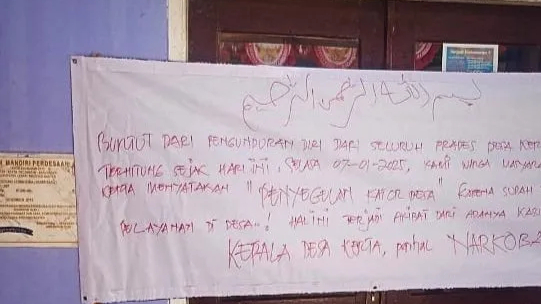 بسم الله الرحمن الرحيم
BUNTUT DARI PENGUNDURAN DIRI DARI SELURUH PRADES DESA KER
TERHITUNG SEJAK HARI INI, SELASA 07-01-2025, KAMI WARGA MASYARA
KERTA MENYATAKAN "PENYEGELAN KATOR DESA" KARENA SUDAH
PELAYANAN DI DESA..! HAL INI TERJADI AKIBAT DARI ADANYA KASU
KEPALA DESA KERTA, perihal NARKOBA
MANDIRI PERDESAAN